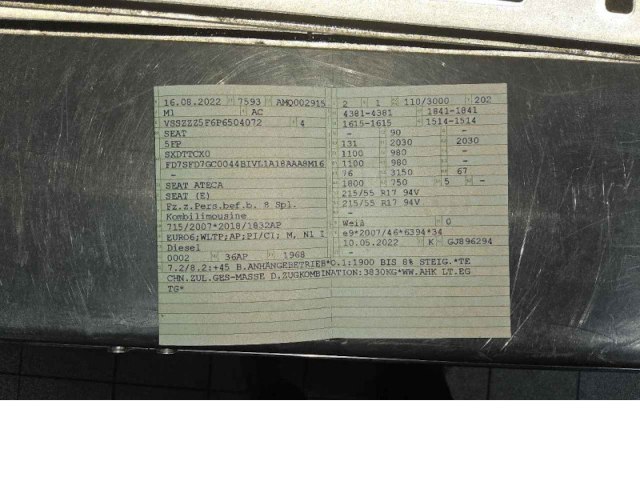 16.08.2022 7593 AMQ002915
M1 AC
VSSZZZ5F6P6504072 4
SEAT
5FP
SXDTTCX0
FD7SFD7GC0044BIVL1A18AAA8M16
-
SEAT ATECA
SEAT (E)
Fz.z.Pers.bef.b. 8 Spl.
Kombilimousine
715/2007*2018/1832AP
EURO6;WLTP;AP;PI/CI; M, N1 I
Diesel
0002 36AP 1968
2 1 110/3000 202
4381-4381 1841-1841
1615-1615 1514-1514
- 90 -
131 2030 2030
1100 980 -
1100 980 -
76 3150 67
1800 750 5 -
215/55 R17 94V
215/55 R17 94V
-
Weiß 0
e9*2007/46*6394*34
10.05.2022 K GJ896294
-
7.2/8.2:+45 B.ANHÄNGEBETRIEB*O.1:1900 BIS 8% STEIG.*TE
CHN.ZUL.GES-MASSE D.ZUGKOMBINATION:3830KG*WW.AHK LT.EG
TG*